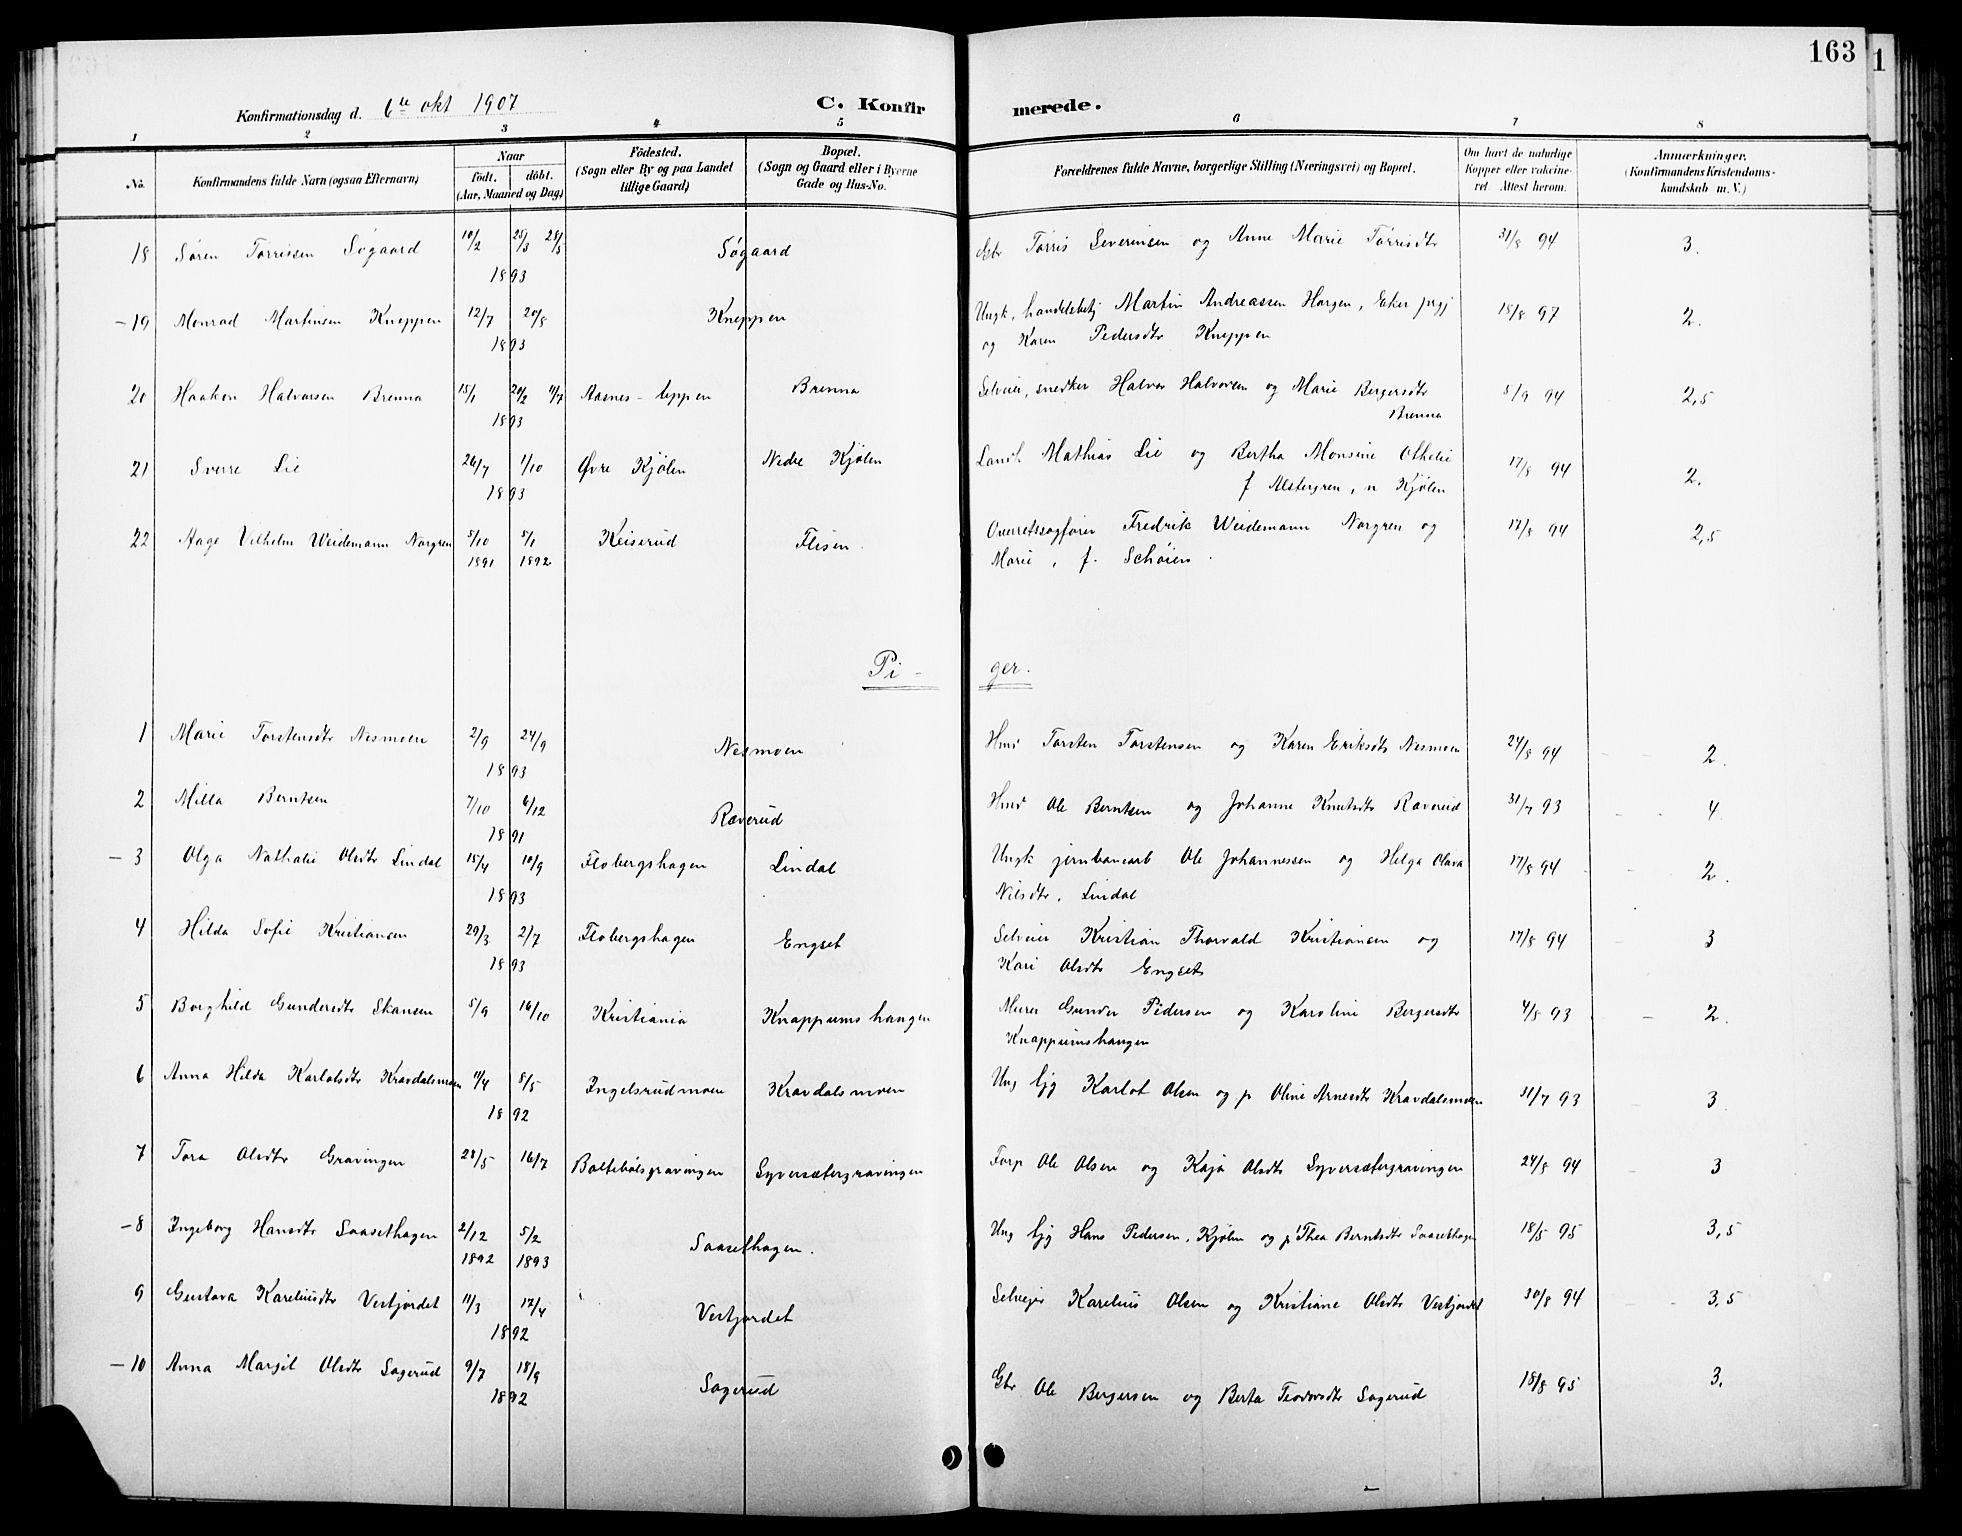 163
1
Konfirmationsdag d. 6te okt 1907
C. Konfirmerede.
1 2 3 4 5 6 7 8
No.
Konfirmandens fulde Navn (ogsaa Efternavn)
Naar
födt. döbt.
(Aar, Maaned og Dag)
Födested.
(Sogn eller By og paa Landet
tillige Gaard)
Bopæl.
(Sogn og Gaard eller i Byerne
Gade og Hus-No.
Forældrenes fulde Navne, borgerlige Stilling (Næringsvei) og Bopæl.
Om havt de naturlige
Kopper eller vakcine-
ret. Attest herom.
Anmærkninger.
(Konfirmandens Kristendoms-
kundskab m. V.)
18 Søren Tørrissen Søgaard 10/2 25/3 28/5 Søgaard Gbr Tørris Severinsen og Anne Marie Tørrisdtr 31/8 94 3.
1893
- 19 Monrad Martinsen Kneppen 12/7 20/8 Kneppen Ungk, handelsbetj Martin Andreassen Horgen, Eker prgj 15/8 97 2.
1893 og Karen Pedersdtr Kneppen
20 Haakon Halvorsen Brenna 15/1 20/2 Aasnes-leppen Brenna Selveier, snedker Halvor Halvorsen og Marie Bergersdtr 5/9 94 2,5
1893 Brenna
21 Sverre Lie 26/7 1/10 Øvre Kjølen Nedre Kjølen Landh Mathias Lie og Bertha Monsine Othelie 17/8 94 2.
1893 f Alstergren, n Kjølen
22 Aage Vilhelm Weidemann Norgren 5/10 5/1 Keiserud Flisen. Overretssagfører Fredrik Weidemann Norgren og 17/8 94 2,5
1891 1892 Marie, f. Schøien.
Pi-ger.
1 Marie Torstensdtr Nesmoen 2/9 24/9 Nesmoen Hmd Torsten Torstensen og Karen Eriksdtr Nesmoen 24/8 94 2.
1893
2 Milla Berntsen 7/10 6/12 Ræverud Hmd Ole Berntsen og Johanne Knutsdtr Ræverud 31/7 93 4.
1891
- 3 Olga Nathalie Olsdtr Lindal 15/4 10/9 Flobergshagen Lindal Ungk jernbanearb Ole Johannessen og Helga Olava 17/8 94 2.
1893 Nilsdtr, Lindal
4 Hilda Sofie Kristiansen 29/3 2/7 Flobergshagen Engset Selveier Kristian Thorvald Kristiansen og 17/8 94 3
1893 Kari Olsdtr Engset
5 Borghild Gundersdtr Skansen 5/9 16/10 Kristiania Knappumshangen Murer Gunder Pedersen og Karoline Bergersdtr 4/8 93 2.
Knappumshangen
6 Anna Hilda Karlotsdtr Kravdalsmoen 11/4 8/5 Ingelsrudmoen Kravdalsmoen Ung tjg Karlot Olsen og p Oline Arnesdtr Kravdalsmoen 31/7 93 3
1892
7 Tora Olsdtr Gravingen 28/5 16/7 Baltebølsgravingen Syversætergravingen Forp Ole Olsen og Kaja Olsdtr Syversætergravingen 24/8 94 3
- 8 Ingeborg Hansdtr Saasethagen 2/12 5/2 Saasethagen. Ung tjg Hans Pedersen, Kjølen og p Thea Berntsdtr Saasethagen 18/5 95 3,5
1892 1893
9 Gustava Kareliusdtr Vestjordet 11/3 17/4 Vestjordet Selveier Karelius Olsen og Kristiane Olsdtr Vestjordet 30/8 94 3,5
1892
- 10 Anna Margit Olsdtr Sagerud 9/7 18/9 Sagerud Gbr Ole Bergersen og Berta Teodorsdtr Sagerud 18/8 95 3.
1892